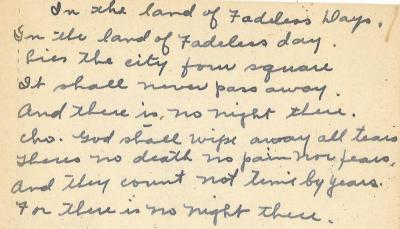 In the land of Fadeless Days.
In the land of Fadeless day.
Lies the city four square
It shall never pass away.
And there is, no night there.
Cho. God shall wipe away all tears
Theres no death no pain nor fears,
And they count not time by years.
For there is no night there.